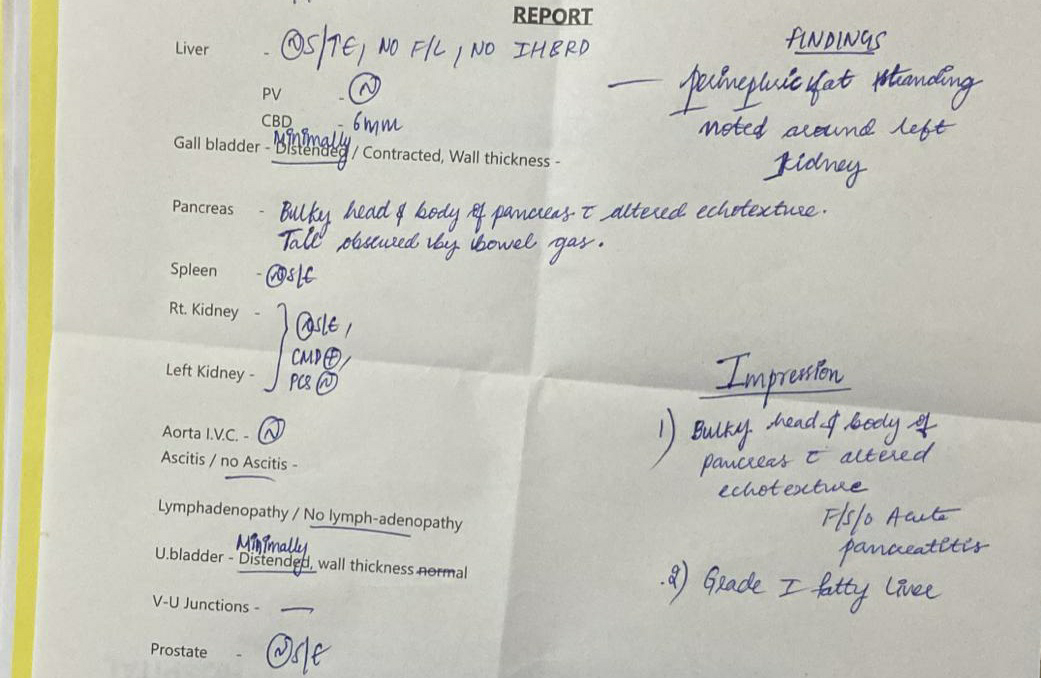 REPORT
Liver - Ⓝ S/↑E, NO F/L, NO IHBRD
PV - Ⓝ
CBD - 6mm
Minimally
Gall bladder - Distended / Contracted, Wall thickness -
Pancreas - Bulky head & body of pancreas c̄ altered echotexture.
Tail obscured by bowel gas.
Spleen - Ⓝ S/E
Rt. Kidney -
Left Kidney -
} Ⓝ S/E,
CMD ⊕,
PCS Ⓝ
Aorta I.V.C. - Ⓝ
Ascitis / no Ascitis -
Lymphadenopathy / No lymph-adenopathy
Minimally
U.bladder - Distended, wall thickness normal
V-U Junctions - —
Prostate - Ⓝ S/E
FINDINGS
— perinephric fat stranding
noted around left
kidney
Impression
1) Bulky head & body of
pancreas c̄ altered
echotexture
F/S/O Acute
pancreatitis
2) Grade I fatty liver